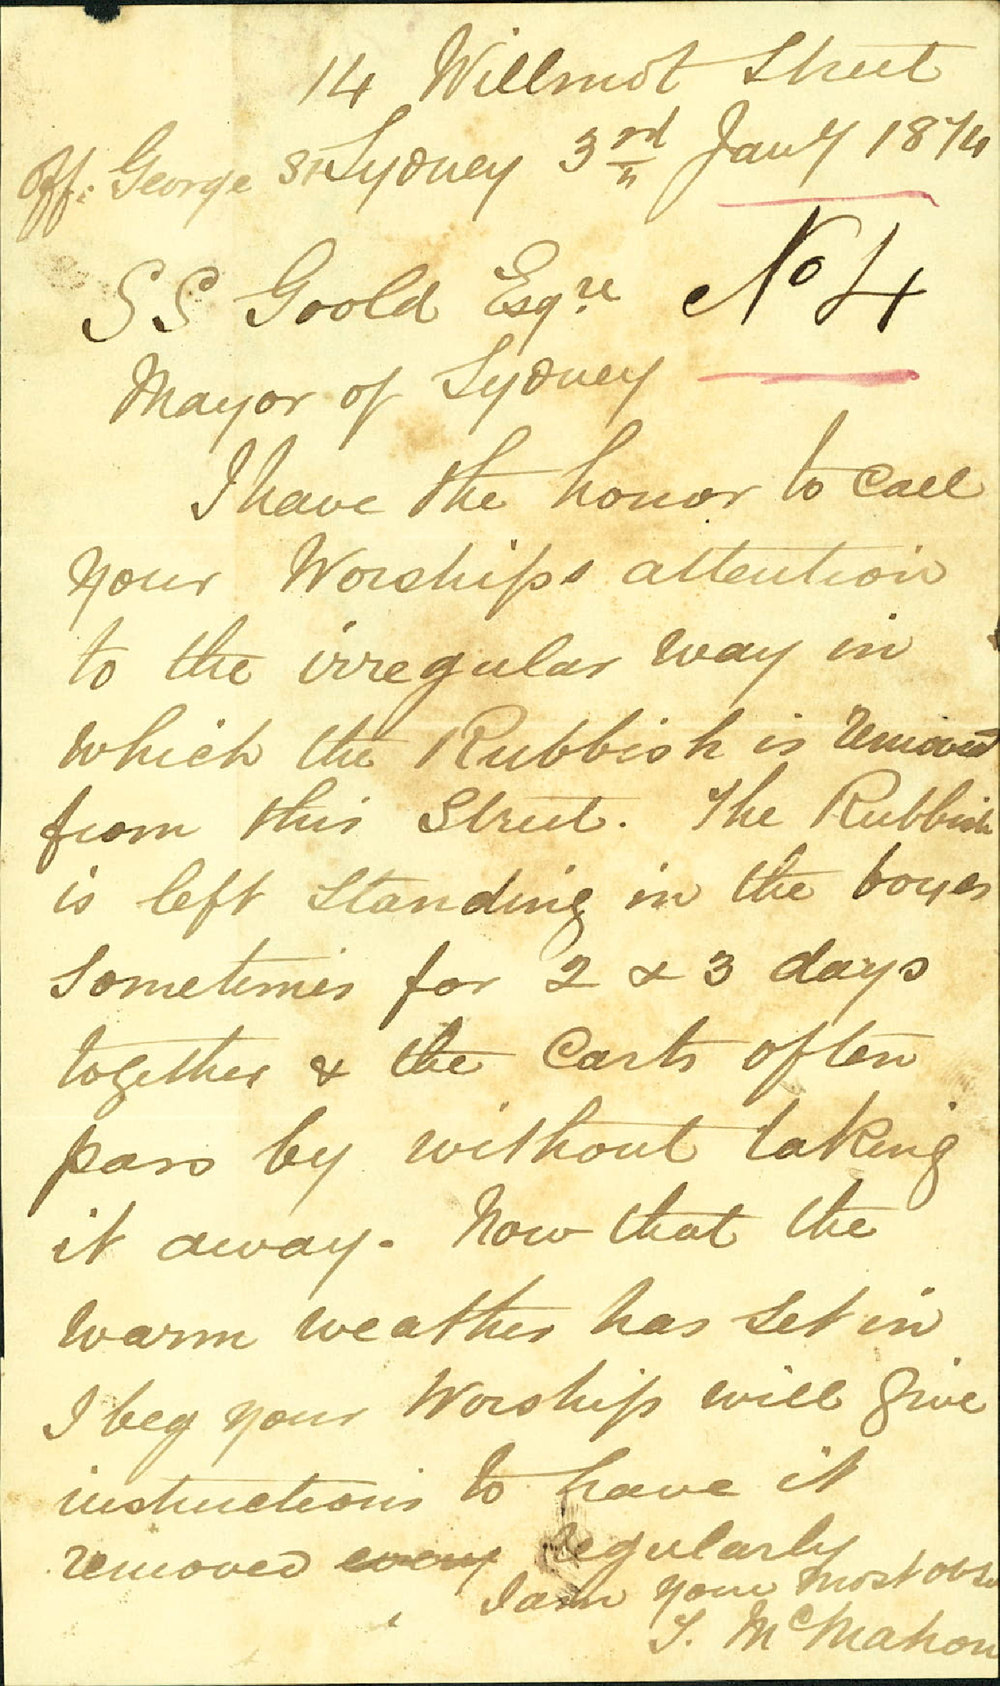 14 Willmot Street
Off: George St Sydney 3rd Jany 1874
No 4
S S Goold Esqre
Mayor of Sydney
I have the honor to call
your Worships attention
to the irregular way in
which the Rubbish is removed
from this Street. The Rubbish
is left standing in the boxes
sometimes for 2 & 3 days
together & the Carts often
pass by without taking
it away. Now that the
warm weather has set in
I beg your Worship will give
instructions to have it
removed every regularly
I am your most obt
T. McMahon